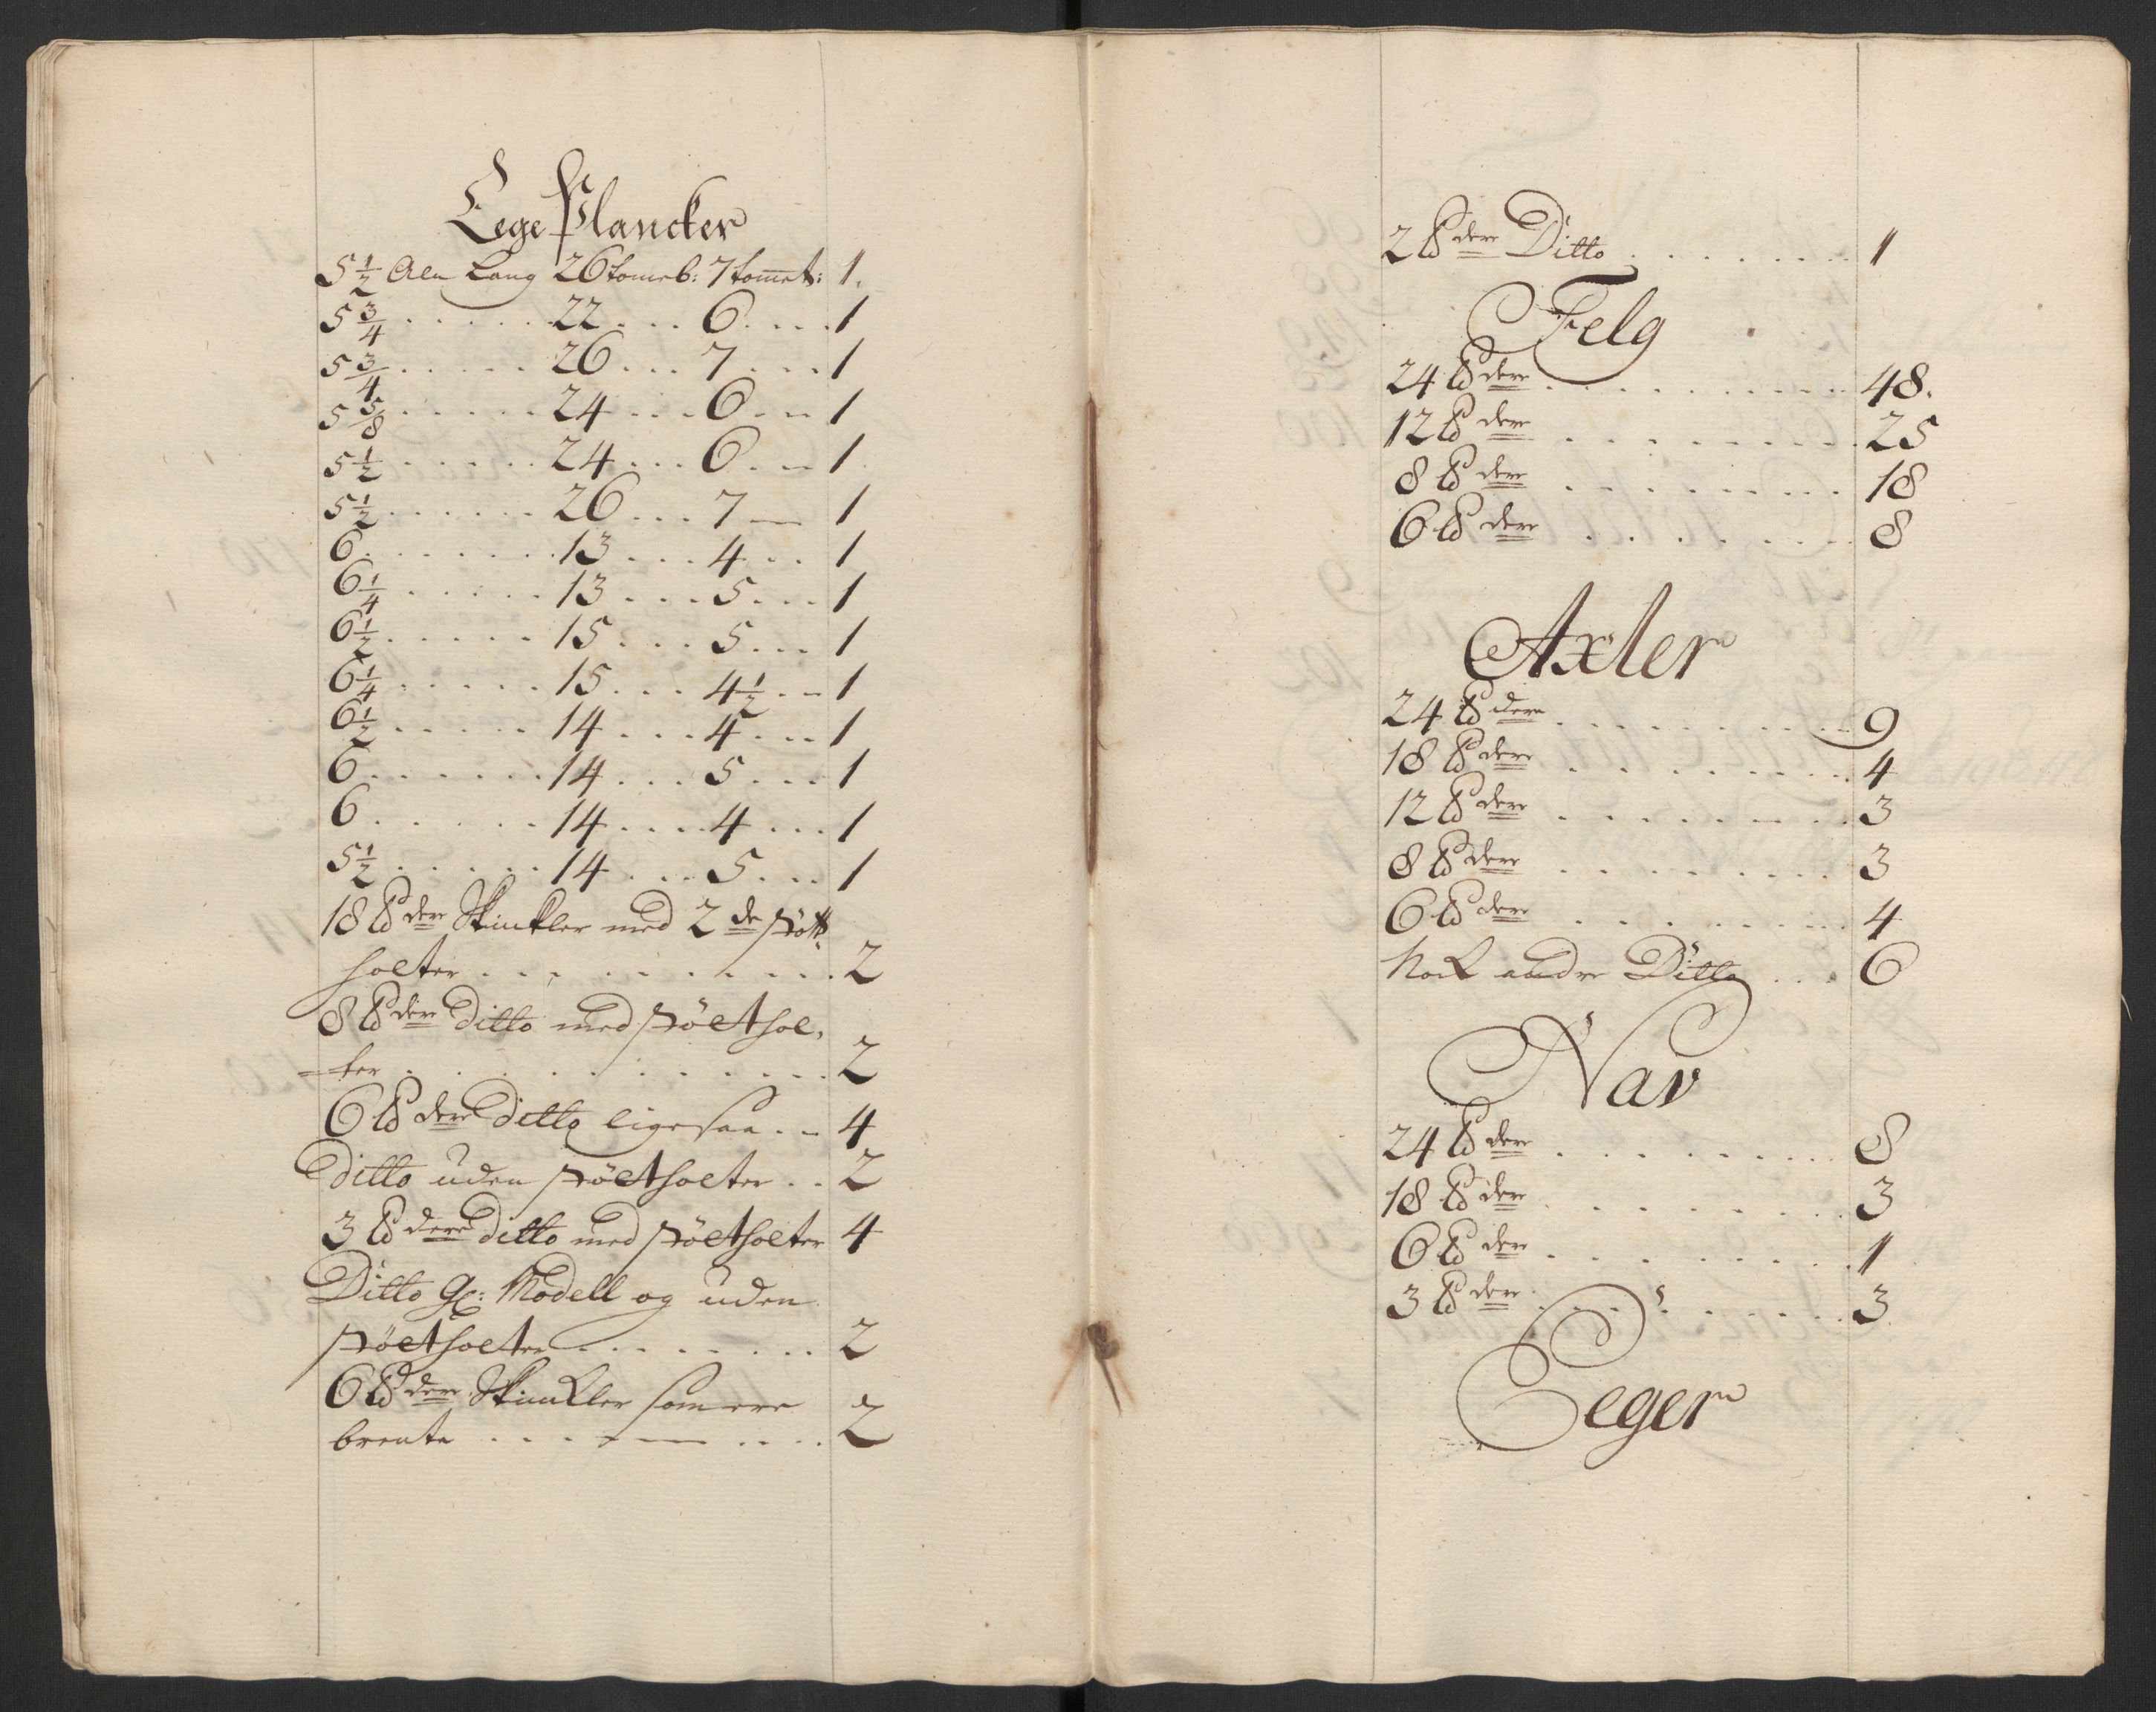 Eege Plancker
5 1/2 Aln Lang 26 tome b: 7 tomet: 1.
5 3/4 . . . . . 22 . . . 6 . . . . 1
5 3/4 . . . . . 26 . . . 7 . . . 1
5 5/8 . . . . . 24 . . . 6 . . . 1
5 1/2 . . . . . 24 . . . 6 . . . 1
5 1/2 . . . . . 26 . . . 7 — 1
6 . . . . . . . 13 . . . 4 . . . 1
6 1/4 . . . . . 13 . . . 5 . . . 1
6 1/2 . . . . . 15 . . . 5 . . . 1
6 1/4 . . . . . 15 . . . 4 1/2 . . 1
6 1/2 . . . . . 14 . . . 4 . . . 1
6 . . . . . . 14 . . . 5 . . . 1
6 . . . . . . 14 . . . 4 . . . 1
5 1/2 . . . . . 14 . . . 5 . . . 1
18 ℔der Skinkler med 2de støtt
holter . . . . . . . . . . . 2
8 ℔der ditto med støethol,
=ter . . . . . . . . . . . . 2
6 ℔der ditto ligesaa . . 4
Ditto uden støetholter . . 2
3 ℔der ditto med støetholter 4
Ditto Gl: Modell og uden
støetholter . . . . . . . . 2
6 ℔der Skinkler som ere
brente . . . . — . . . . 2
2 ℔der Ditto . . . . . . . . 1
Felg
24 ℔der . . . . . . . . . . 48.
12 ℔der . . . . . . . . . 25
8 ℔der . . . . . . . . . 18
6 ℔der . . . . . . . . 8
Axler
24 ℔der . . . . . . . . . 9
18 ℔der . . . . . . . . . 4
12 ℔der . . . . . . . . . 3
8 ℔der . . . . . . . . . 3
6 ℔der . . . . . . . . . 4
Nock andre Ditto . . . 6
Nav
24 ℔der . . . . . . . . . 8
18 ℔der . . . . . . . . . 3
6 ℔der . . . . . . . . . 1
3 ℔der . . . . . . . . . 3
Eeger